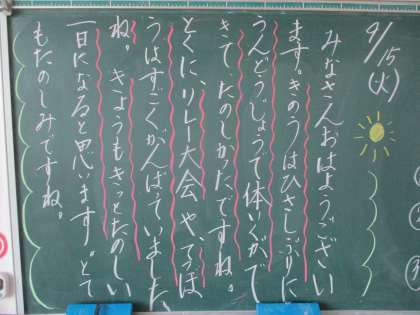 9/15(火)
みなさんおはようござい
ます。きのうはひさしぶりに
うんどうじょうで体いくがで
きて、たのしかったですね。
とくに、リレー大会や、てつぼ
うはすごくがんばっていました
ね。きょうもきっとたのしい
一日になると思います。とて
もたのしみですね。
①
②
③